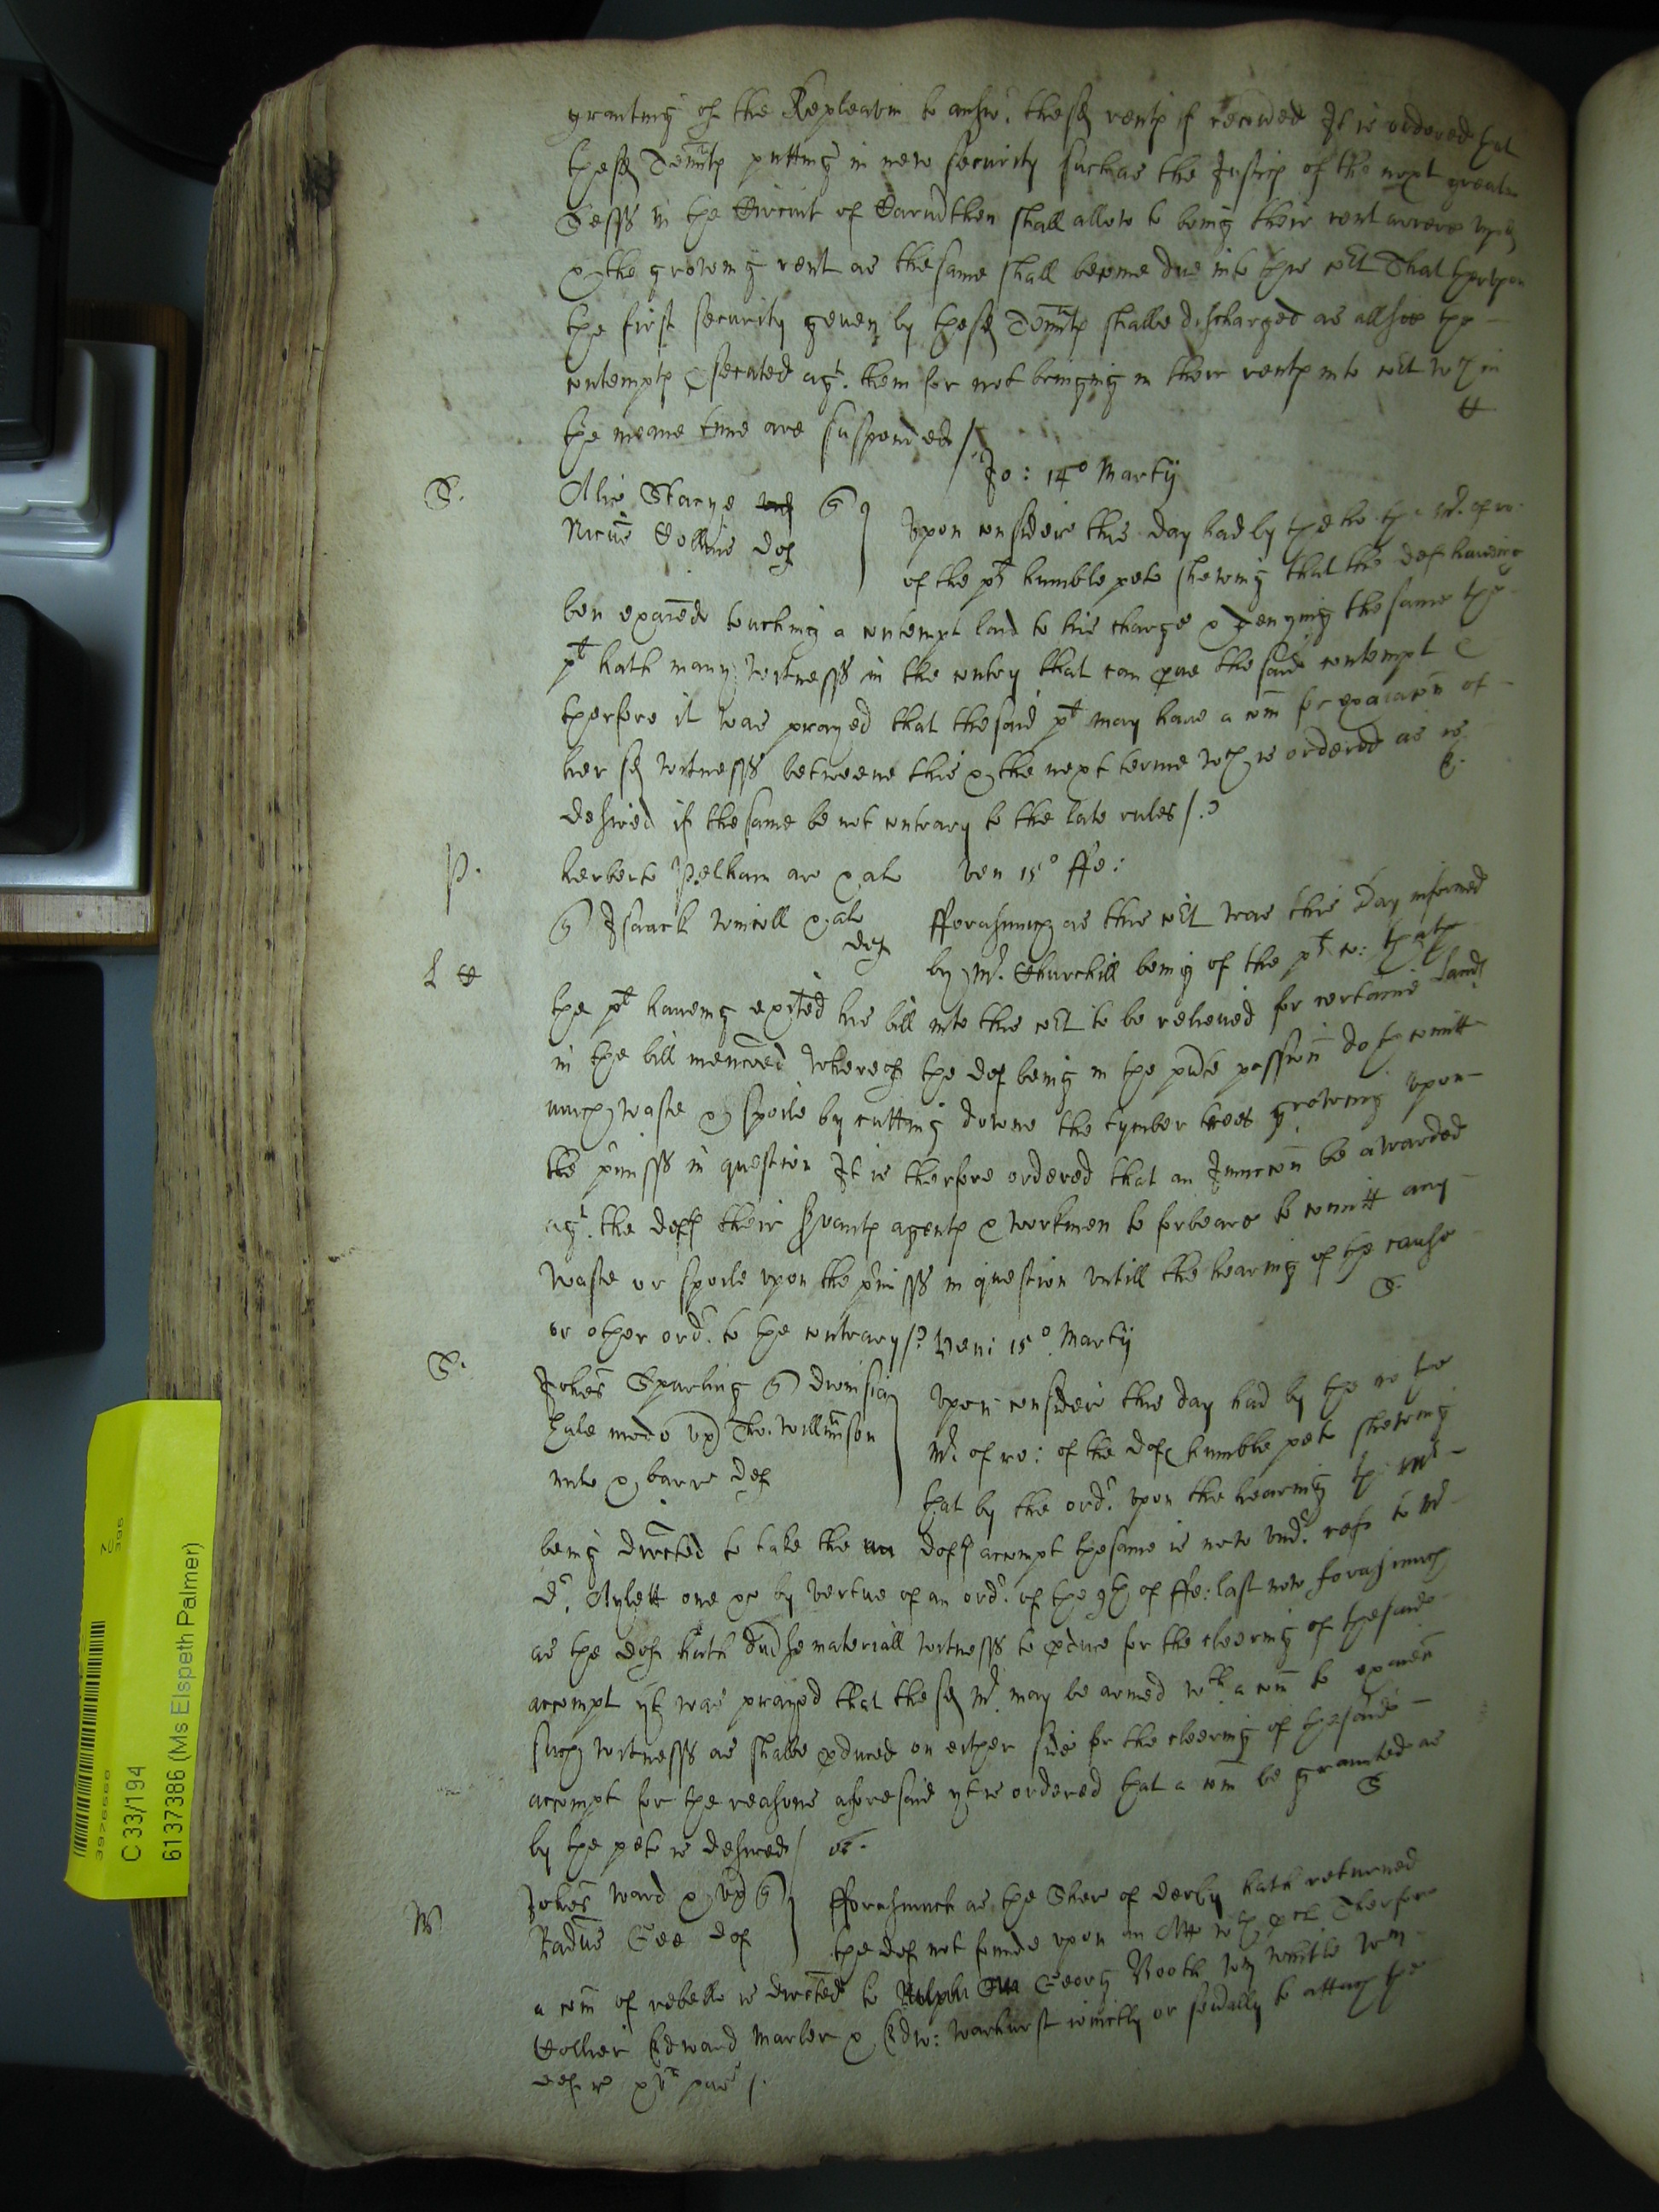 granting of the Repleavin to answ.r these rents if recouerd It is ordered that
these Tennts putting in new security such as the Justices of the next greate
Sess in the Circuit of Carmdthen shall allow to bring their rent arrere
& the groweing rent as the same shall become due into this co.rt That therevpon
the first security geuen by these Tennts shalbe discharged as allsoe the
contempts psecuted ag.t them for not bringing in their rents into co.rt w.ch in
the meane time are suspended /
H
Jo: 14o Martij
S.
Alic Starye q
Nicus Collins def
Vpon consideir this day had by the ho the M.r of ro:
of the pl humble peto shewing that the def haueing
ben exaied touching a contempt laid to his charge & denying the same the
plt hath many witnesss in the contry that can pue the said contempt
therfore it was prayed that the said plt may haue a com for exaiacon of
her sd witnesss betweene this & the next terme w.ch is ordered as is
desired if the same be not contrary to the late rules /.
P.
herberte Pelham ar & al
q Isaack wincoll & al
def
Ven 15o ffe:
fforasmuch as this co.rt was this day informed
L H
by M.r Churchill being of the pl co: that
the plt haueing exited his bill into this co.rt to be relieued for certaine lands
in the bill menconed whereof the def being in the possion doth comitt
much waste & spoile by cutting downe the tymber trees groweing vpon
the p'misss in question It is therfore ordered that an Iniuccon be awarded
ag.t the defts their Svants agents & workmen to forbeare to comitt any
waste or spoile vpon the p'misss in question vntill the hearing of the cause
or other ord.r to the contrary /.
S.
Ven: 15o Martij
S.
Johes Sparling q Dionisia
hale modo vx Tho. Willmson
mil & barr def
Vpon consideir this day had by the ho the
M.r of ro: of the def humble peto shewing
that by the ord.r vpon the hearing the
being directed to take the defts accompt the same is now vnd.r refe to M.r
D.r Aylett one &c by vertue of an ord.r of the 9th of ffe: last now forasmuch
as the def hath diuse materiall witnesss to pduce for the cleering of the said
accompt yt was prayed that the sd M.r may be armed w.th a com to exameñ
such witnesss as shalbe pduced on either side for the cleering of the said
accompt for the reasons aforesaid yt is ordered that a com be graunted as
by the peto is desired /
S
W
Johes Ward & vx q
Radus Gee def
fforasmuch as the Sher of derby hath returned
the def not founde vpon an Att w.th pcl. Therfore
a com of rebell is directed to Georg Booth
Collier Edward Marler & Edw: Warhurst ioinctly or seu'ally to attach the
def
3976580
C 33/194
6137386 (Ms Elspeth Palmer)